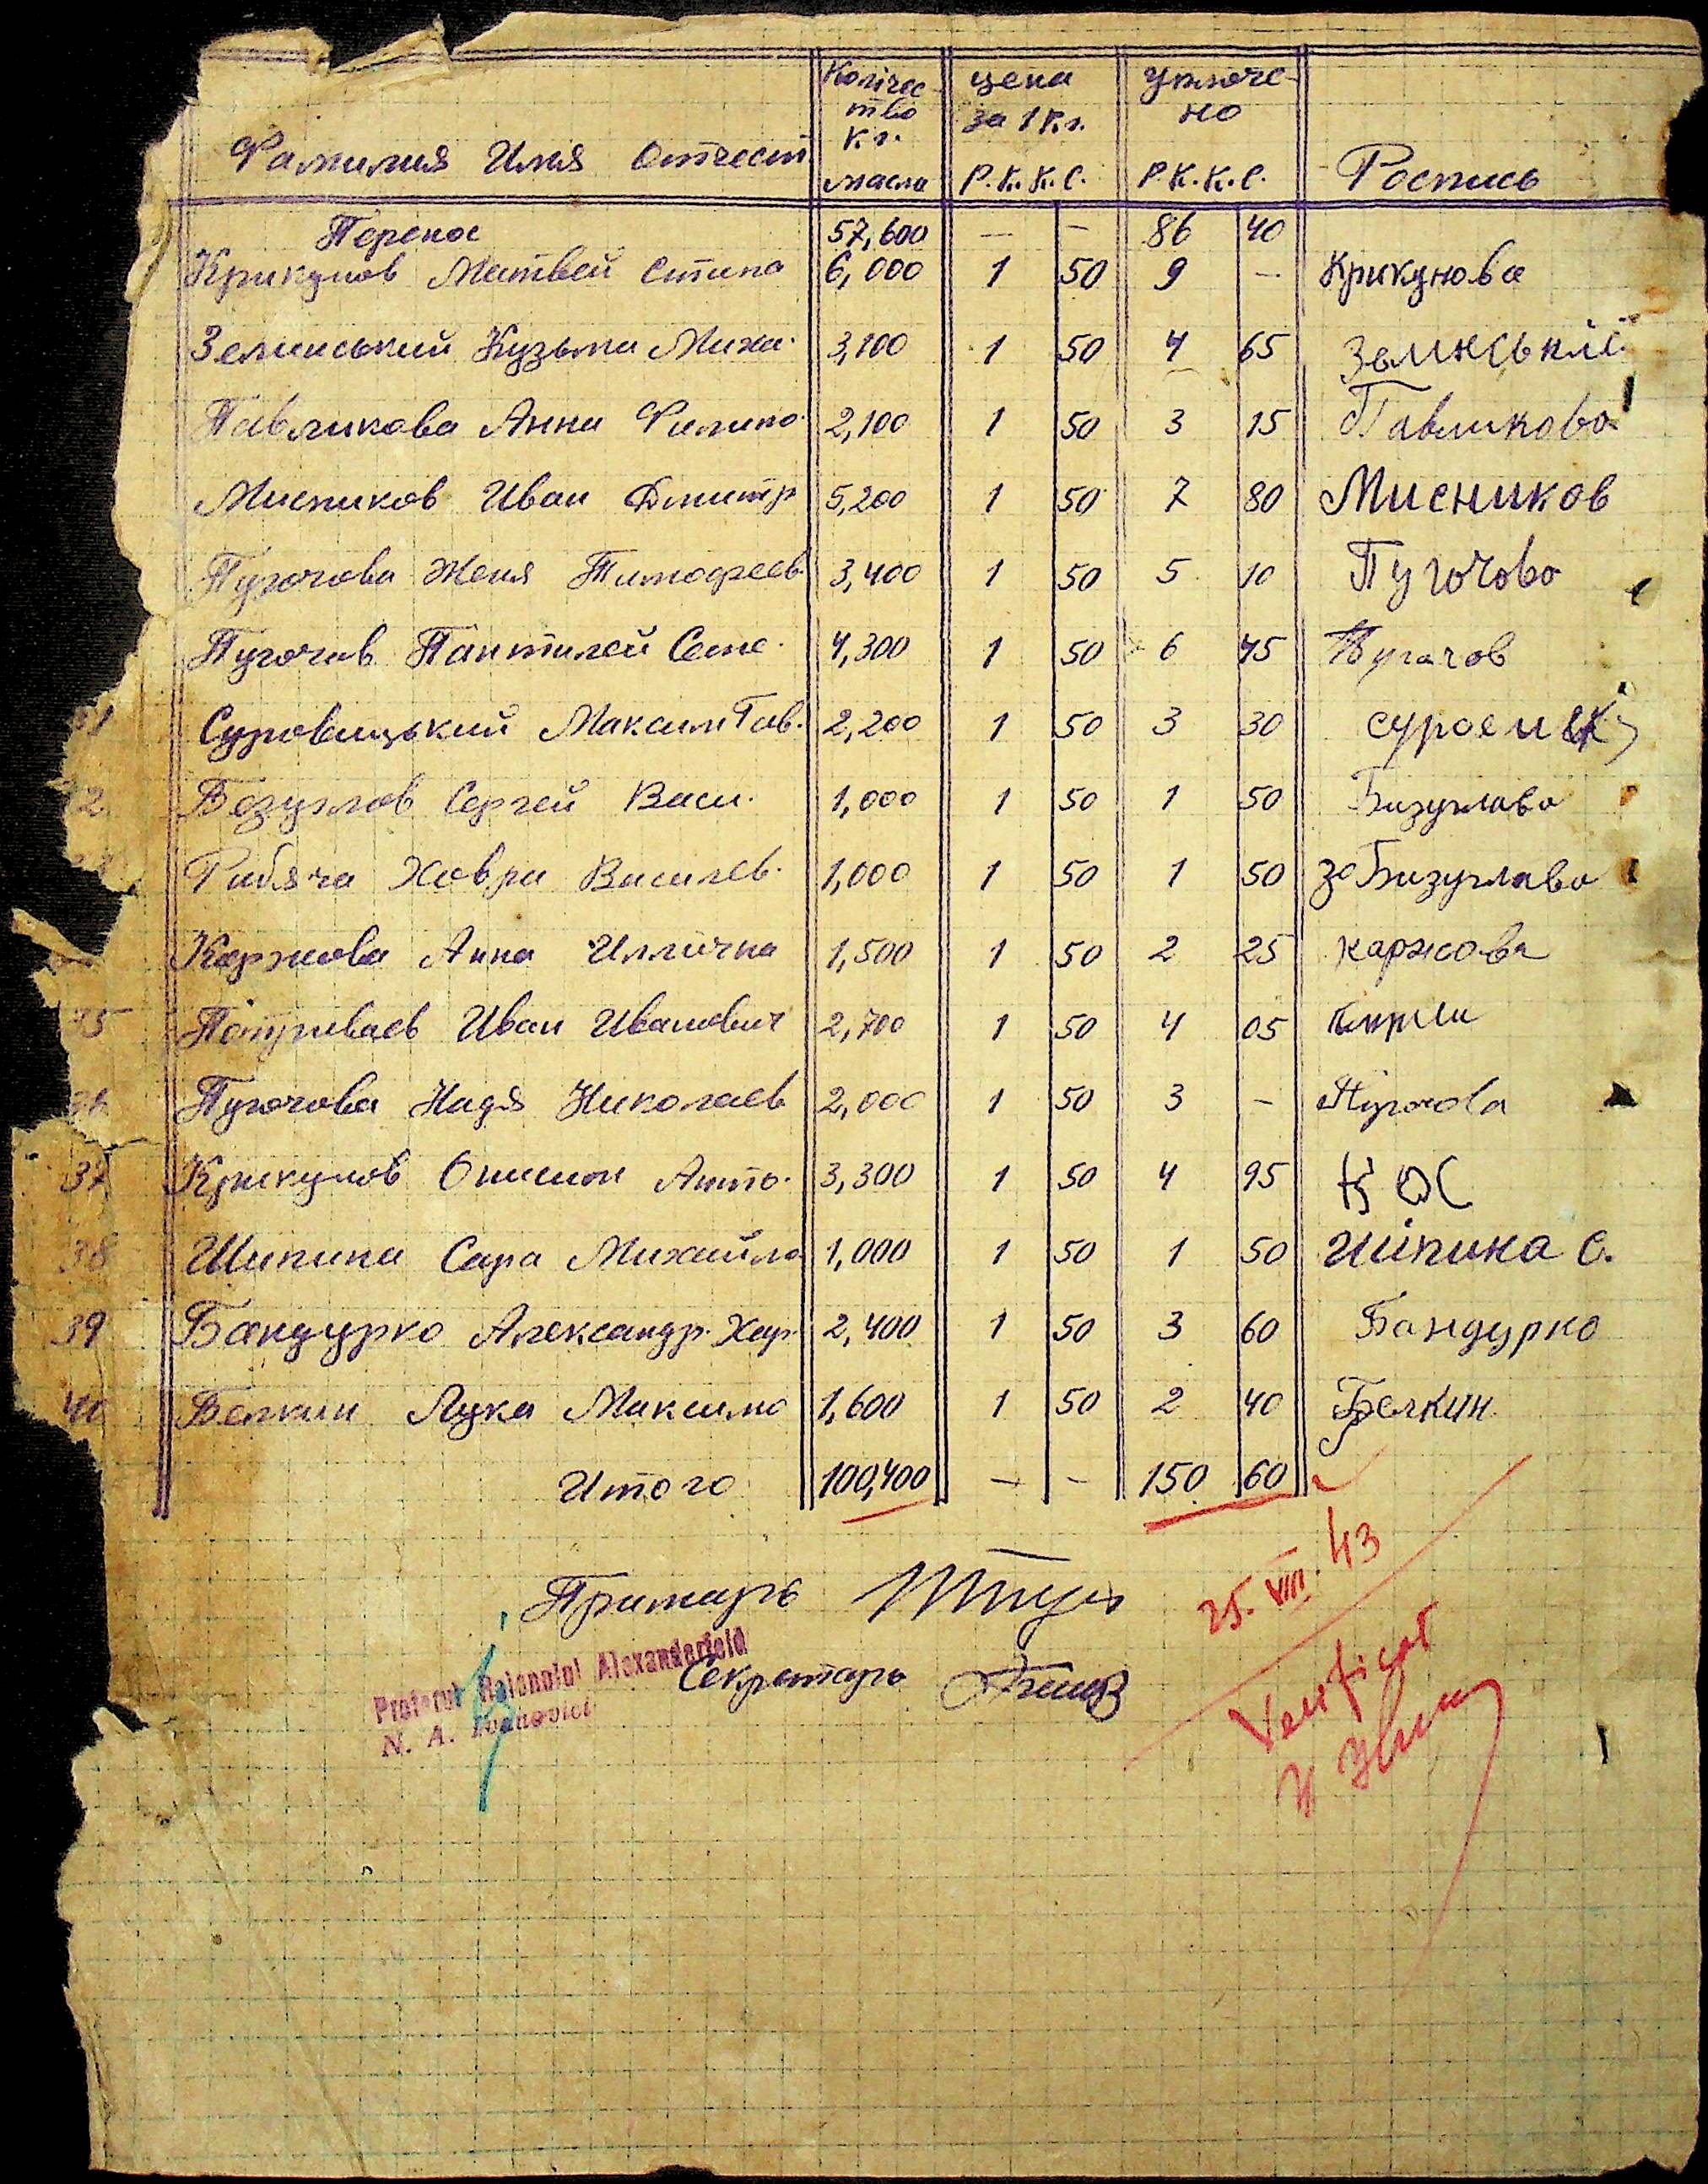 Фамилия Имя Отчест Количес тво к.г. масла цена за 1 к.г. Р.К.К.С. уплоче- но Р.К.К.С. Роспись
Перенос 57,600 — — 86 40
Крикунов Матвей Степа 6,000 1 50 9 — Крикунова
Земинський Кузьма Миха. 3,100 1 50 4 65 Земинський
Павликова Анна Филипо. 2,100 1 50 3 15 Павликова
Мисников Иван Дмитр 5,200 1 50 7 80 Мисников
Пугочова Женя Тимофеев. 3,400 1 50 5 10 Пугочова
Пугочов Пантилей Семе. 4,300 1 50 6 45 Пугачов
31 Суровицький Максим Гав. 2,200 1 50 3 30
2 Безуглов Сергей Васи. 1,000 1 50 1 50 Бизуглава
Рибяча Ховра Василев. 1,000 1 50 1 50 за Бизуглава
Каржова Анна Иллична 1,500 1 50 2 25 каржова
35 Потуриваев Иван Иванович 2,700 1 50 4 05
36 Пугочова Надя Николаев 2,000 1 50 3 — Пугочова
37 Крикунов Онисим Анто. 3,300 1 50 4 95 КОС
38 Шипина Сара Михайло 1,000 1 50 1 50 Шіпина С.
39 Бандурко Александр. Хар. 2,400 1 50 3 60 Бандурко
40 Белкин Лука Максимо 1,600 1 50 2 40 Белкин
Итого 100,400 — — 150 60
25. VIII. 43
Примарь
Verificat
Секретарь
Pretorul Raionului Alexanderfeld
N. A. Ivanovici